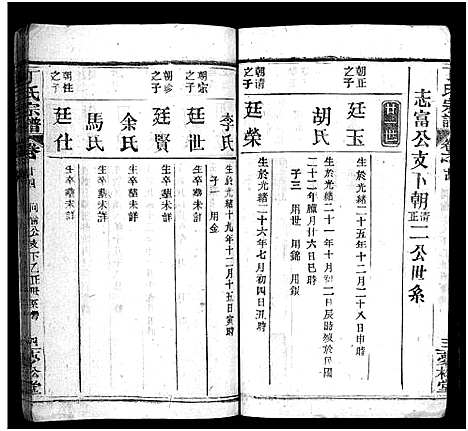 志富公支下朝清正二公世系
廿一世
朝正之子
廷玉
生於光緒二十五年十二月二十八日申時
胡氏
生於光緒二十一年十月初二日辰時歿於民國
二十二年臘月廿六日巳時
子三 用世 用錦 用銀
朝清之子
廷榮
生於光緒二十六年七月初四日丑時
李氏
生於光緒十九年十二月十五日寅時
子一 用金
朝宗之子
廷世
生卒葬未詳
朝珍之子
廷賢
生卒葬未詳
余氏
生卒葬未詳
馬氏
生卒葬未詳
朝柱之子
廷仕
生卒葬未詳
丁氏宗譜